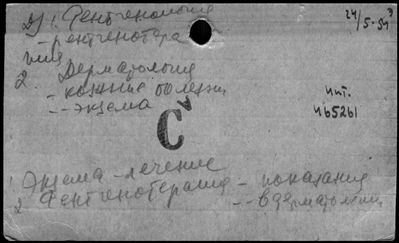 1. Рентгенология
24/5-54
- рентгенотера
пия
2. Дерматология
- кожные болезни
-- экзема
инт.
465261
C
1 Экзема - лечение
2 Рентгенотерапия - показания
-- в дерматологии